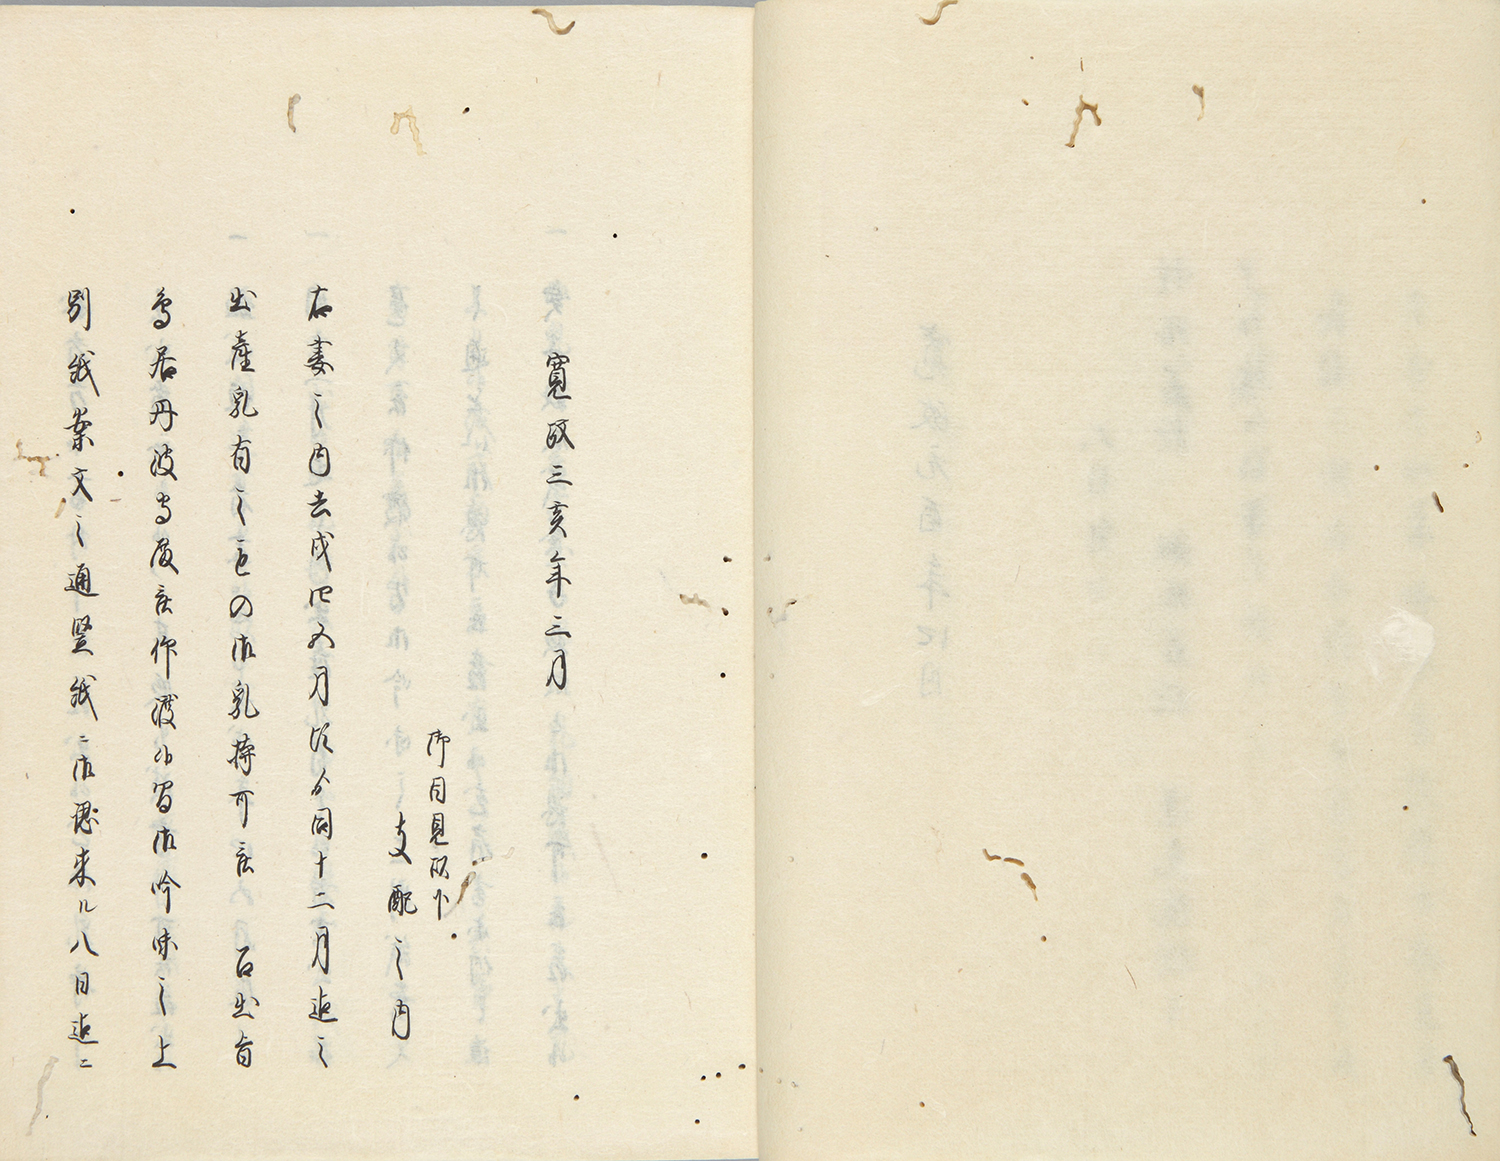 寛政三亥年三月
御目見以下
支配之内
右妻之内去戌四五月頃ゟ同十二月迄之
出産乳有之色々御乳持可被 召出旨
鳥居丹波守殿被仰渡候間御吟味之上
別紙案文之通竪紙ニ御認来ル八日迄ニ